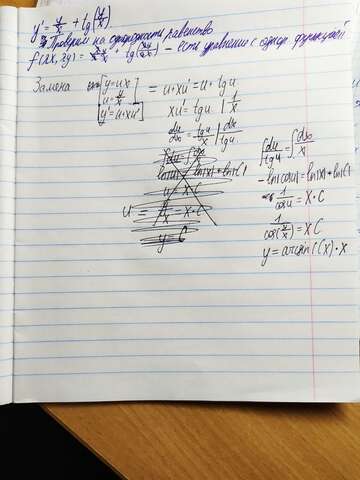 y' = y/x + tg(y/x)
Проверим на однородность равенство
f(λx, λy) = λy/λx + tg(λy/λx) - есть уравнение с однор. функцией
Замена [y = ux
u = y/x
y' = u + xu'] = u + xu' = u + tg u
xu' = tg u | 1/x
du/dx = tg u/x | dx/tg u
∫ du/tg u = ∫ dx/x
- ln|cos u| = ln|x| + ln|C|
1/cos u = x · C
1/cos(y/x) = xC
y = arcsin(Cx) · x
u = y/x = x · C
y = C